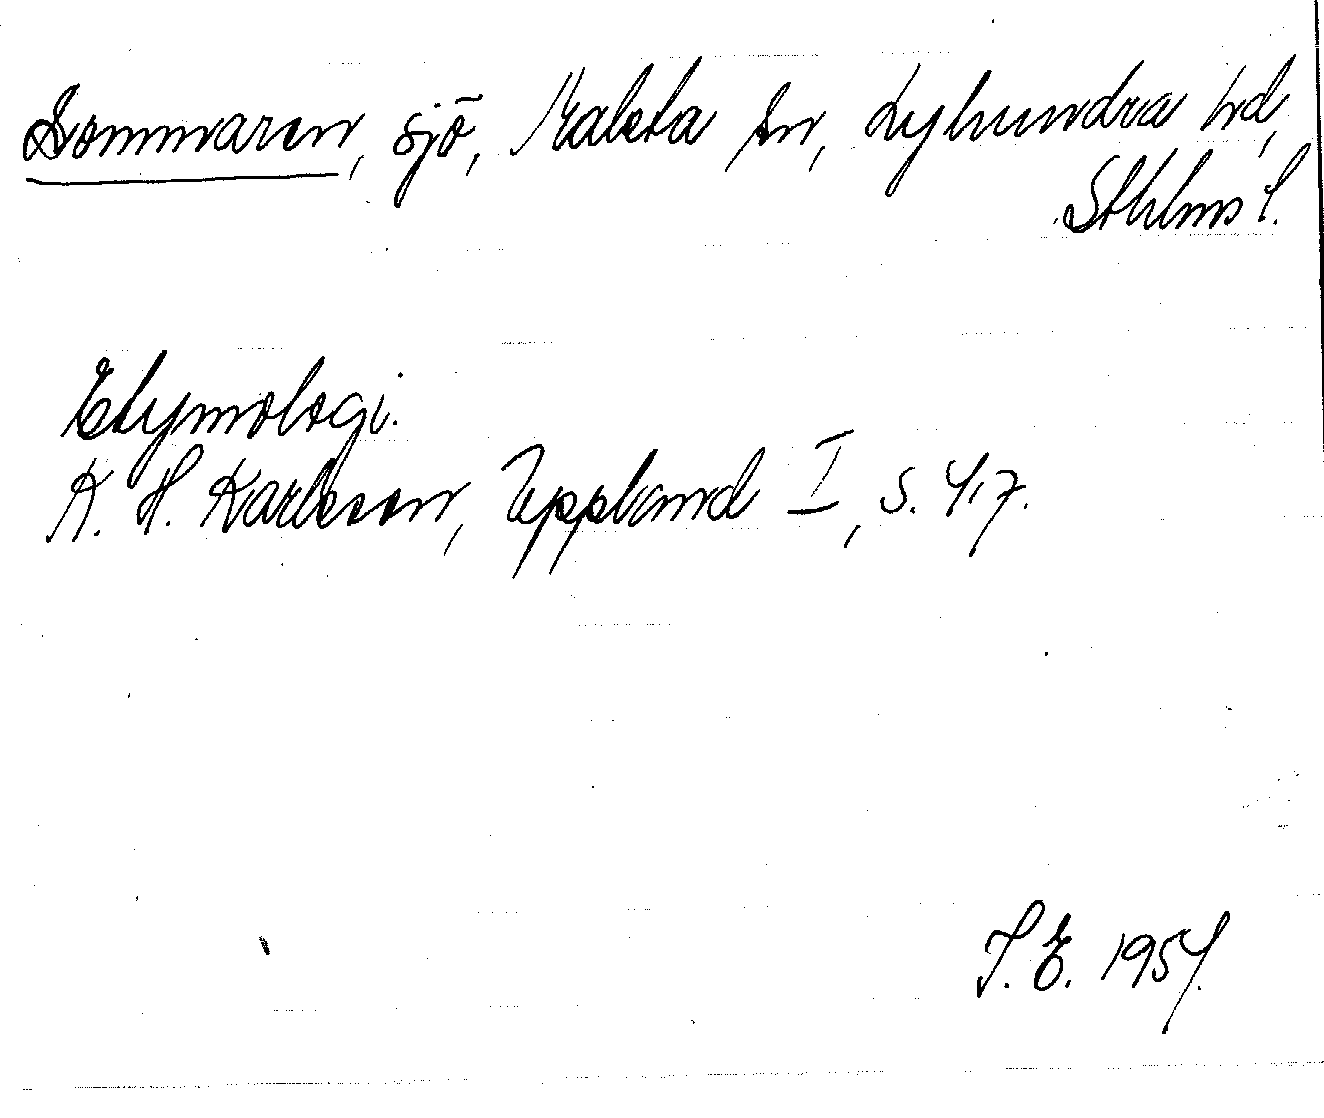 Sommaren, sjö, Malsta sn, Lyhundra hd,
Sthlms l.
Etymologi.
K. H. Karlsson, Uppland I, s. 47.
J. E. 1954.